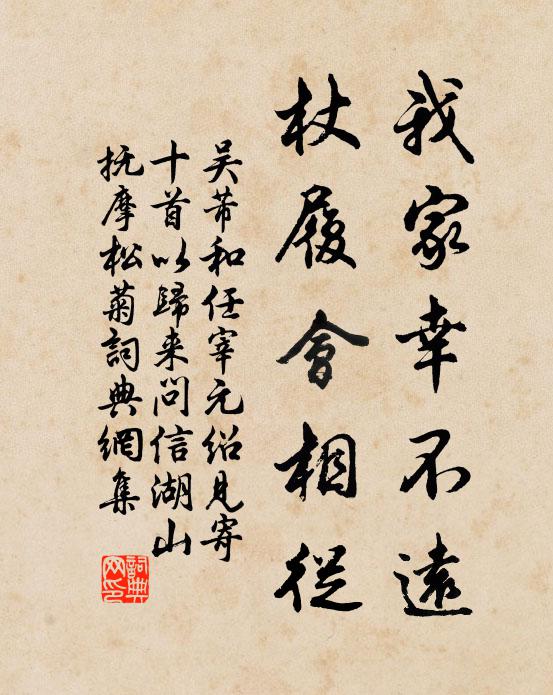 我家幸不遠
杖履會相從
吴芾和任宰元绍見寄
十首以歸来问信湖山
抚摩松菊詞典網集
詞典网印